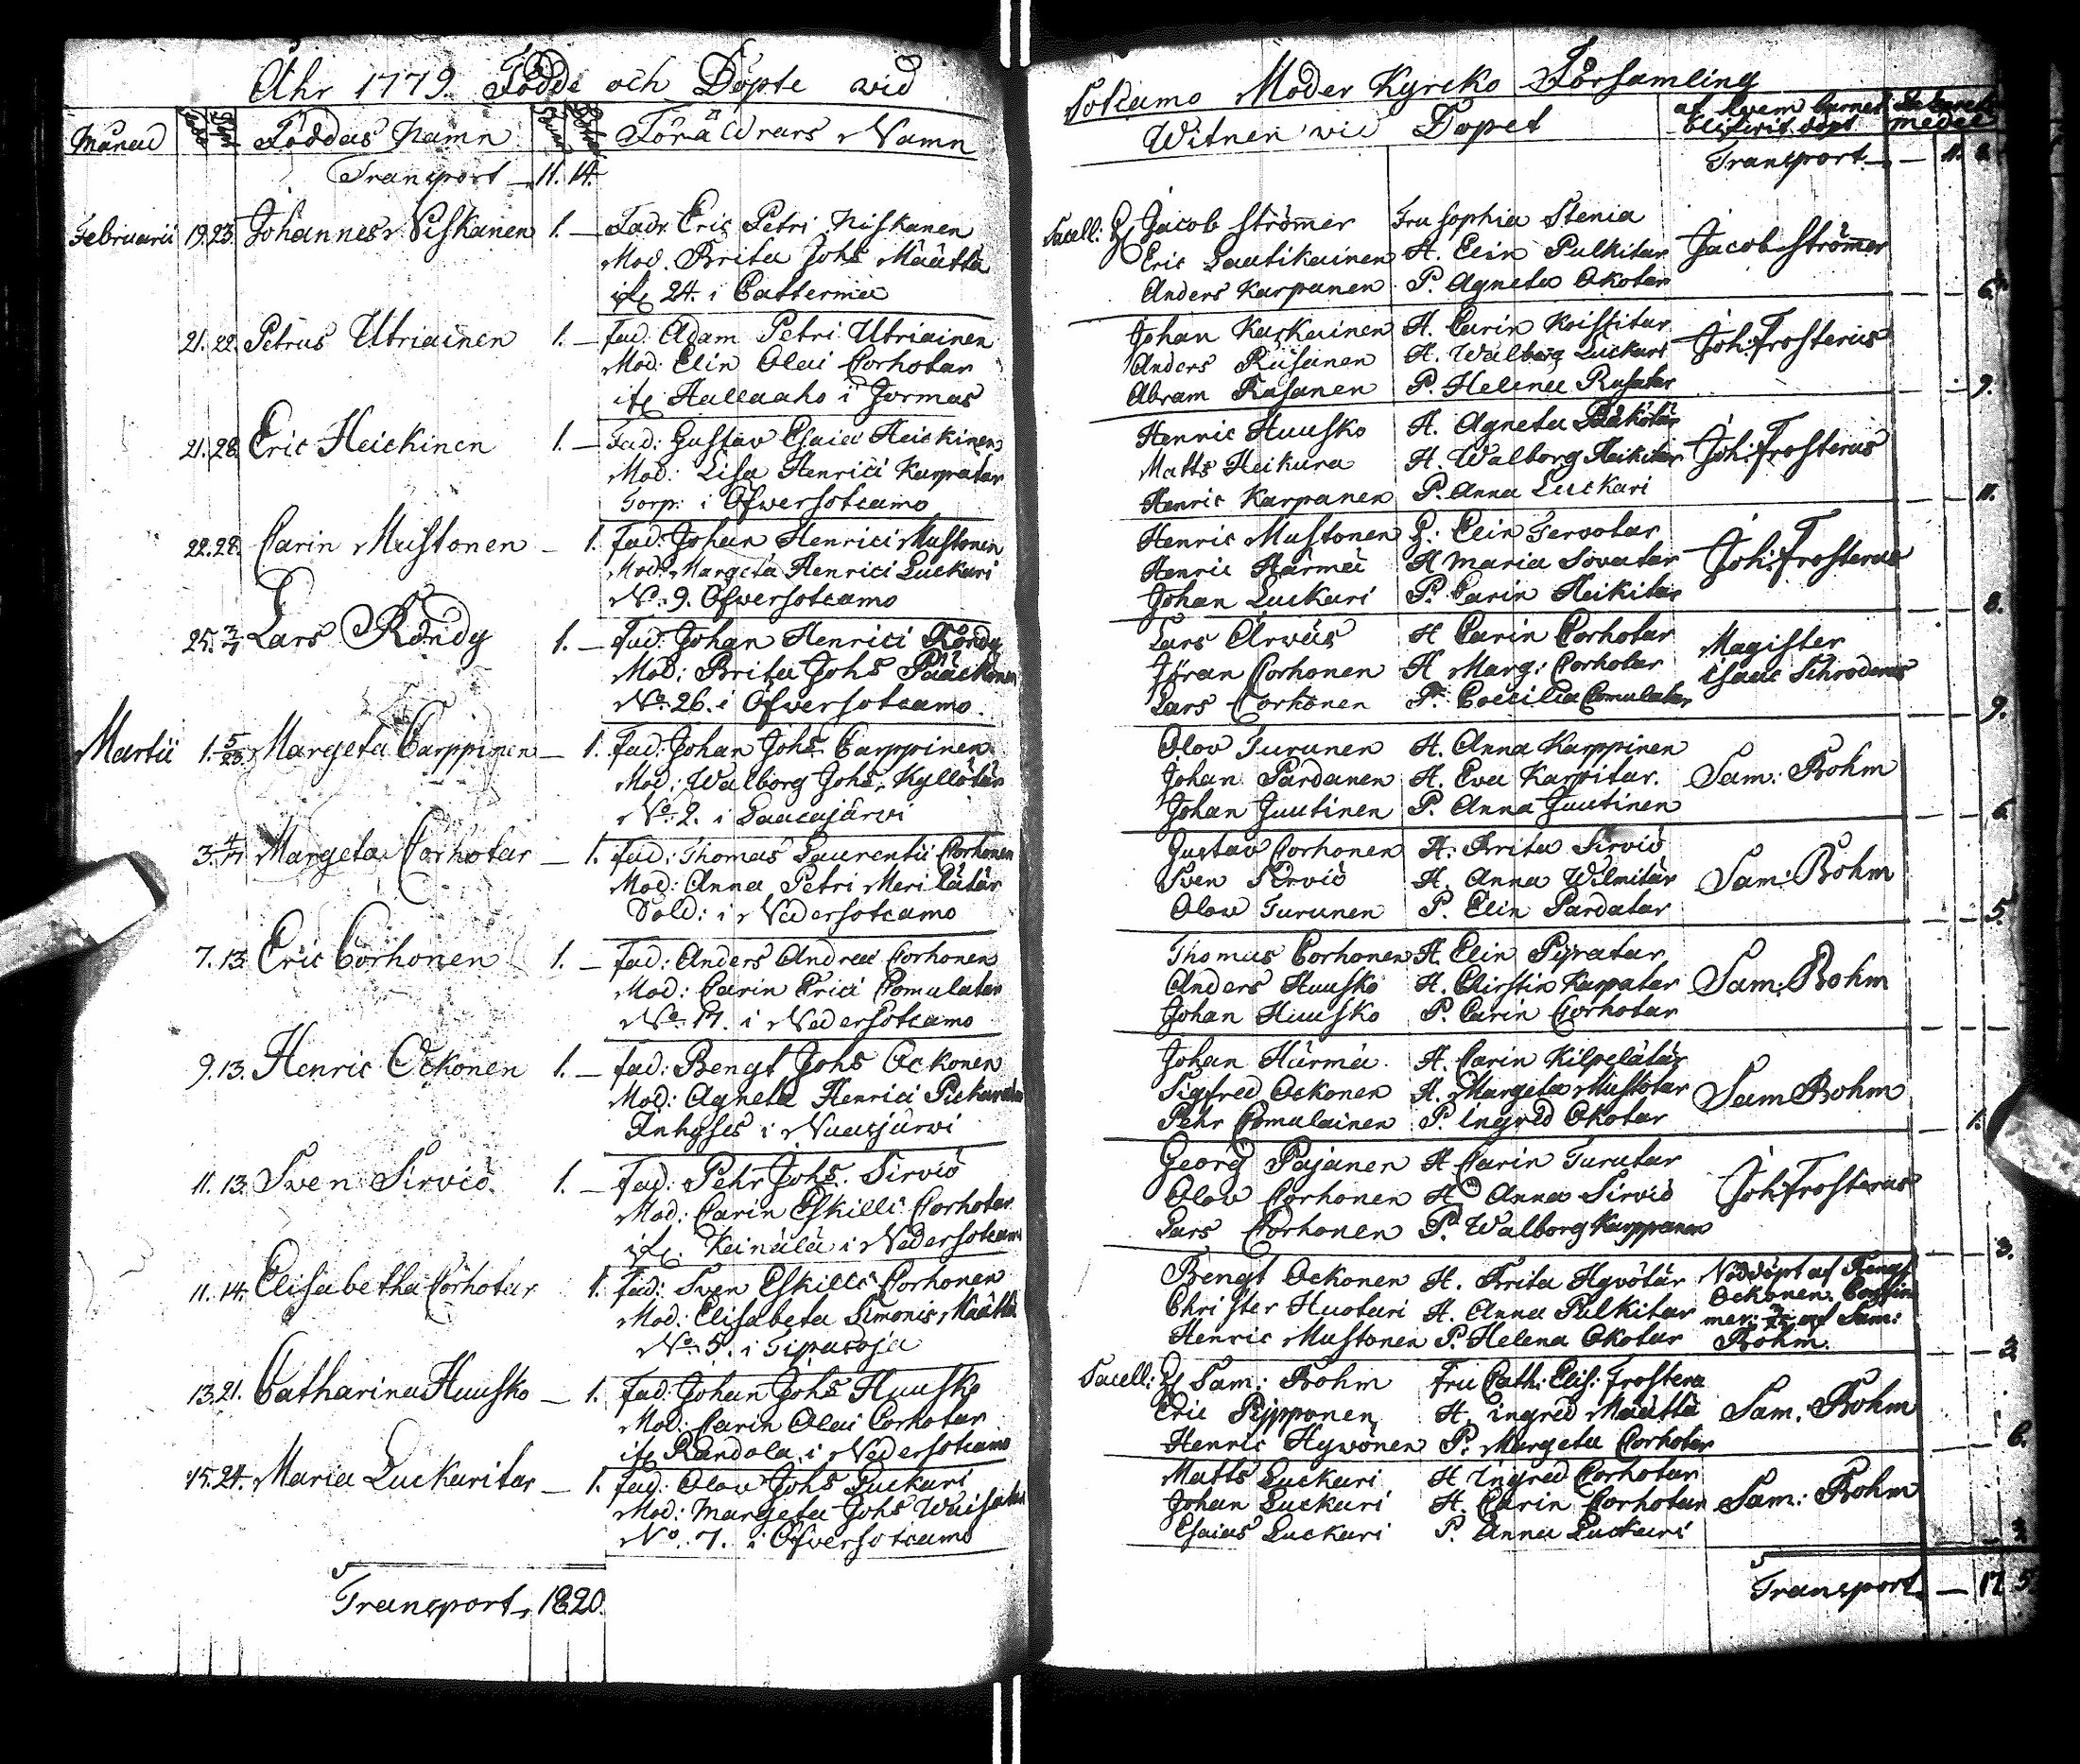 Åhr 1779. Födde och Döpte wid
Månad Födde Döpt Föddas Namn Föräldrars Namn
Transport 11. 14.
Februarii 19. 23. Johannes Niskanen 1. — Fadr. Eric Petri Niskanen
Mod. Brita Johs Määttä
N 24. i Cattermä
21. 22. Petrus Utriainen 1. — Fad: Adam Petri Utriainen
Mod: Elin Olai Corhotar
Hallaaho i Jormas
21. 28. Eric Heickinen 1. — Fad: Gustav Esaiæ Heickinen
Mod: Lisa Henrici Karpatar
Torp: i Öfwersotcamo
22. 28. Carin Mustonen — 1. Fad: Johan Henrici Mustonen
Mod: Margeta Henrici Luckari
No. 9. Öfwersotcamo
25. 7/4 Lars Röndy 1. — Fad: Johan Henrici Röndy
Mod: Brita Johs Pääckönen
No. 26. i Öfwersotcamo.
Martii 1. 5/25. Margeta Carppinen — 1. Fad: Johan Johs. Carppinen
Mod: Walborg Johs. Kyllötär
No. 2. i Laacajärwi
3. 4/17 Margeta Corhotar — 1. Fad: Thomas Laurentii Corhonen
Mod: Anna Petri Merilätär
Sold: i Nedersotcamo
7. 13. Eric Corhonen 1. — Fad: Anders Andreæ Corhonen
Mod: Carin Erici Comulatar
No. 17. i Nedersotcamo
9. 13. Henric Ockonen 1. — Fad: Bengt Johs Ockonen
Mod: Agneta Henrici
Inhyses i Nuasjärwi
11. 13. Sven Sirviö 1. — Fad: Pehr Johs. Sirviö
Mod: Carin Eskilli Corhotar
Keinälä i Nedersotcamo
11. 14. Elisabetha Corhotar 1. Fad: Sven Eskilli Corhonen
Mod: Elisabeta Simonis Määttä
No. 5. i Tipasoja
13. 21. Catharina Huusko — 1. Fad: Johan Johs Huusko
Mod: Carin Olai Corhotar
Randola i Nedersotcamo
15. 24. Maria Luckaritar — 1. Fad: Olov Johs Luckari
Mod: Margeta Johs
No. 7. i Öfwersotcamo
Transport, 18. 20.
Sotcamo Moder Kyrcko Församling
Witnen wid Dopet af hwem barnet blifwit döpt medel
Transport — 11.
Sacell: Jacob Strömmer Fru Sophia Stenia Jacob Strömmer
Eric Lautikainen H. Elin Pulkitar
Anders Karpanen P. Agneta Okotar 6.
Johan Karkainen H. Carin Koisstitar Joh: Frosterus
Anders Räisänen H. Walborg Luckari
Abram Räsänen P. Helena Rusatar 9.
Henric Huusko H. Agneta Joh: Frosterus
Matts Heikura H. Walborg Heikitar
Henric Karpanen P. Anna Luckari 11.
Henric Mustonen H: Elin Tervotar Joh: Frosterus
Henric Härmä H Maria Sovatar
Johan Luckari P. Carin Heikitar 8.
Lars Arwäs H Carin Corhotar Magister
Jöran Corhonen H Marg: Corhotar Isaac Schroderus
Lars Corhonen P. Coecilia Comulatar 9.
Olov Turunen H. Anna Karppinen Sam: Bohm
Johan Pardanen H. Eva Karpitar.
Johan Juutinen P. Anna Juutinen 6
Gustav Corhonen H. Brita Sirviö Sam: Bohm
Sven Sirviö H. Anna Wilmitär
Olov Turunen P. Elin Pardatar 5
Thomas Corhonen H. Elin Pyratar Sam: Bohm
Anders Huusko H. Chirstin Karpatar
Johan Huusko P. Carin Corhotar
Johan Härmä. H. Carin Kilpelätär Sam Bohm
Sigfred Ockonen H. Margeta Mustotar
Pehr Comulainen P. Ingred Okotar 1.
Georg Pajanen H Carin Turutar Joh: Frosterus
Olov Corhonen H Anna Sirviö
Lars Corhonen P. Walborg Karppanen 3.
Bengt Ockonen H. Brita Hyvötär Nöddöpt af Bengt
Christer Huotari H. Anna Pulkitar Ockonen.
Henric Mustonen P. Helena Okotar af Sam: Bohm. 3
Sacell: Sam: Bohm Fru Cath: Elis: Frostera Sam. Bohm
Eric Pipponen H. Ingred Määttä
Henric Hyvönen P. Margeta Corhotar 6.
Matts Luckari H Ingred Corhotar Sam: Bohm
Johan Luckari H. Carin Corhotar
Esaias Luckari P. Anna Luckari
Transport. — 17 5.